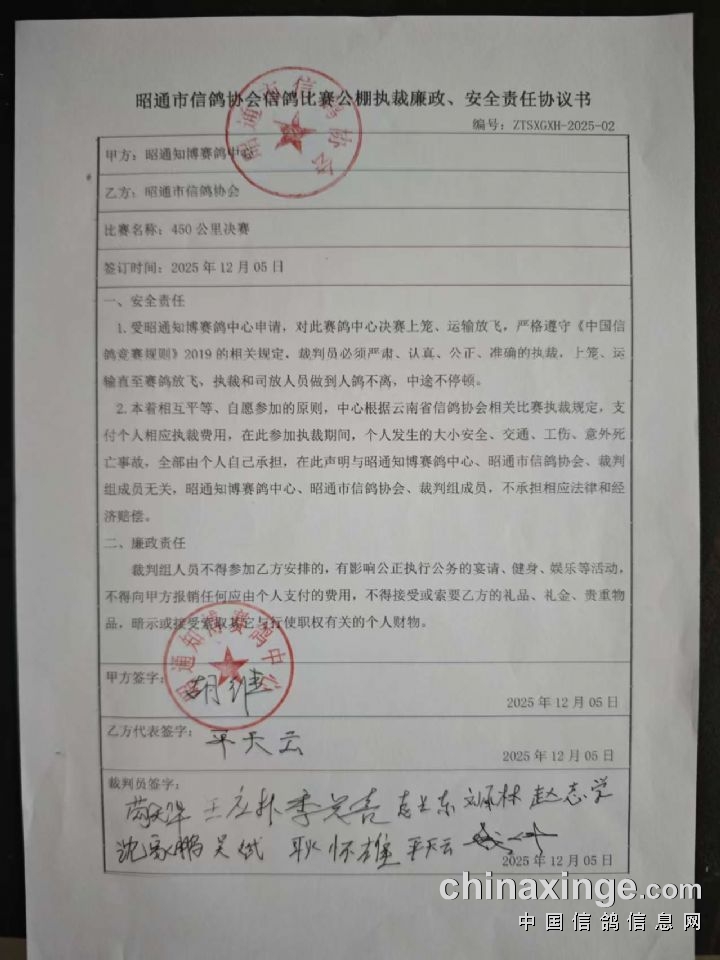 昭通市信鸽协会信鸽比赛公棚执裁廉政、安全责任协议书
编号：ZTSXGXH-2025-02
甲方：昭通知博赛鸽中心
乙方：昭通市信鸽协会
比赛名称：450公里决赛
签订时间：2025年12月05日
一、安全责任
1.受昭通知博赛鸽中心申请，对此赛鸽中心决赛上笼、运输放飞，严格遵守《中国信
鸽竞赛规则》2019的相关规定，裁判员必须严肃、认真、公正、准确的执裁，上笼、运
输直至赛鸽放飞，执裁和司放人员做到人鸽不离，中途不停顿。
2.本着相互平等、自愿参加的原则，中心根据云南省信鸽协会相关比赛执裁规定，支
付个人相应执裁费用，在此参加执裁期间，个人发生的大小安全、交通、工伤、意外死
亡事故，全部由个人自己承担，在此声明与昭通知博赛鸽中心、昭通市信鸽协会、裁判
组成员无关，昭通知博赛鸽中心、昭通市信鸽协会、裁判组成员，不承担相应法律和经
济赔偿。
二、廉政责任
裁判组人员不得参加乙方安排的，有影响公正执行公务的宴请、健身、娱乐等活动，
不得向甲方报销任何应由个人支付的费用，不得接受或索要乙方的礼品、礼金、贵重物
品，暗示或接受索取其它与行使职权有关的个人财物。
昭通市信鸽协会
昭通知博赛鸽中心
甲方签字：
2025年12月05日
乙方代表签字：平天云
2025年12月05日
裁判员签字：
王应朴 赵志学
沈家鹏 吴斌 耿怀雄 平天云
2025年12月05日
chinaxinge.com
中国信鸽信息网